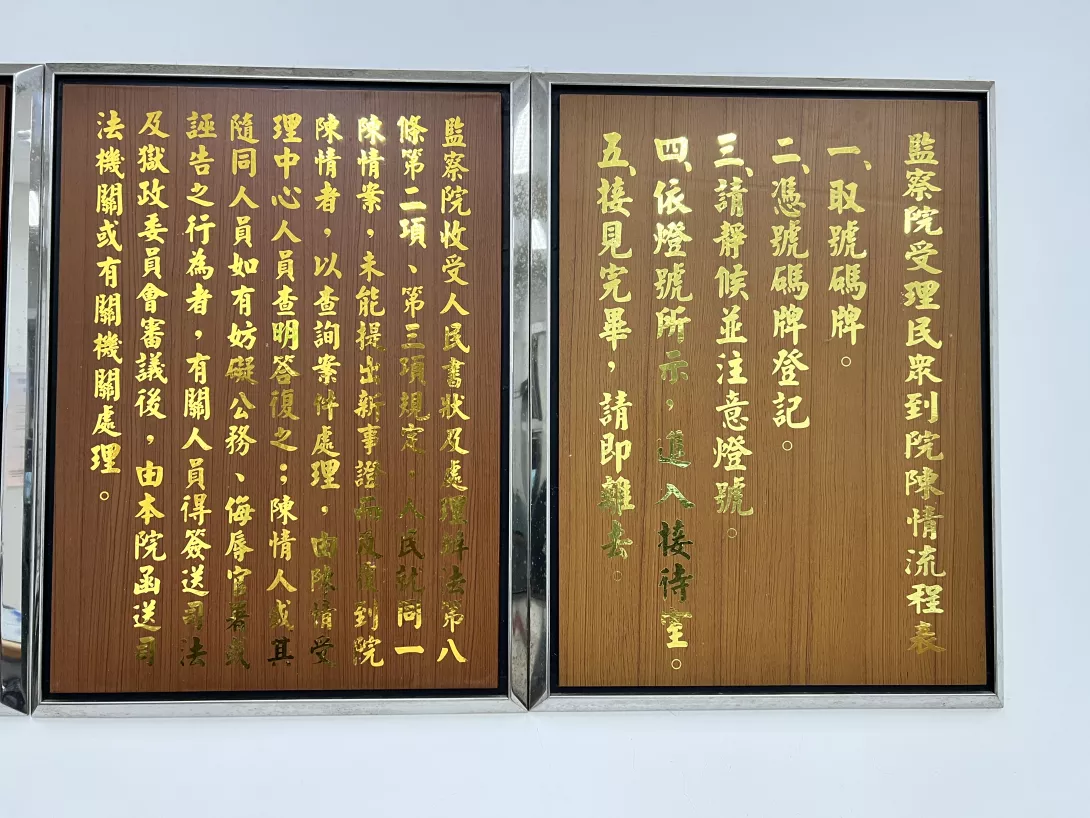 監察院受理民眾到院陳情流程表
一、取號碼牌。
二、憑號碼牌登記。
三、請靜候並注意燈號。
四、依燈號所示，進入接待室。
五、接見完畢，請即離去。
監察院收受人民書狀及處理辦法第八
條第二項、第三項規定，人民就同一
陳情案，未能提出新事證到院
陳情者，以查詢案件處理，由陳情受
理中心人員查明答復之；陳情人或其
隨同人員如有妨礙公務、侮辱官署或
誣告之行為者，有關人員得簽送司法
及獄政委員會審議後，由本院函送司
法機關或有關機關處理。